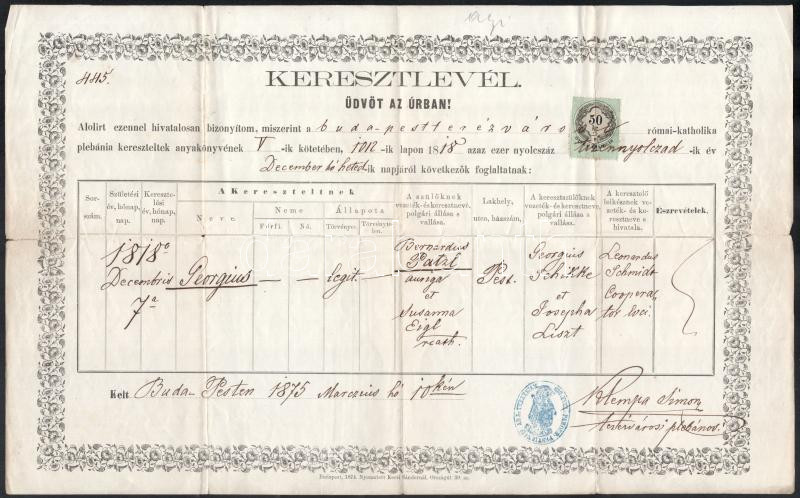 445.
KERESZTLEVÉL.
ÜDVÖT AZ ÚRBAN!
50
Alolirt ezennel hivatalosan bizonyítom, miszerint a buda-pestterézvárosi római-katholika
plebánia kereszteltek anyakönyvének V -ik kötetében, 1012-ik lapon 1818 azaz ezer nyolcszáz tizennyolczad -ik év
December hó heted ik napjáról következők foglaltatnak:
Sor-
szám.
Születési
év, hónap,
nap.
Keresz-
telési
év, hónap,
nap.
A Kereszteltnek
Neve.
Neme
Férfi.
Nő.
Állapota
Törvényes.
Törvényte-
len.
A szülőknek
vezeték- és keresztneve,
polgári állása s
vallása.
Lakhely,
utca, házszám.
A keresztszülőknek
vezeték- és keresztneve,
polgári állása s
vallása.
A keresztelő
lelkésznek ve-
zeték- és ke-
resztneve s
hivatala.
Eszrevételek.
1818
Decembris
7a
Georgius
—
—
legit.
Bernardus
Patzl
auriga
et
Susanna
Eigl
rcath.
Pest.
Georgius
et
Josepha
Liszt
Leonardus
Schmidt
Coopera-
tor loci.
Kelt Buda-Pesten 1875 Marczius hó 10kén
Klempa Simon
terézvárosi plebános.
Budapest, 1874. Nyomatott Kocsi Sándornál, Országút 39. sz.